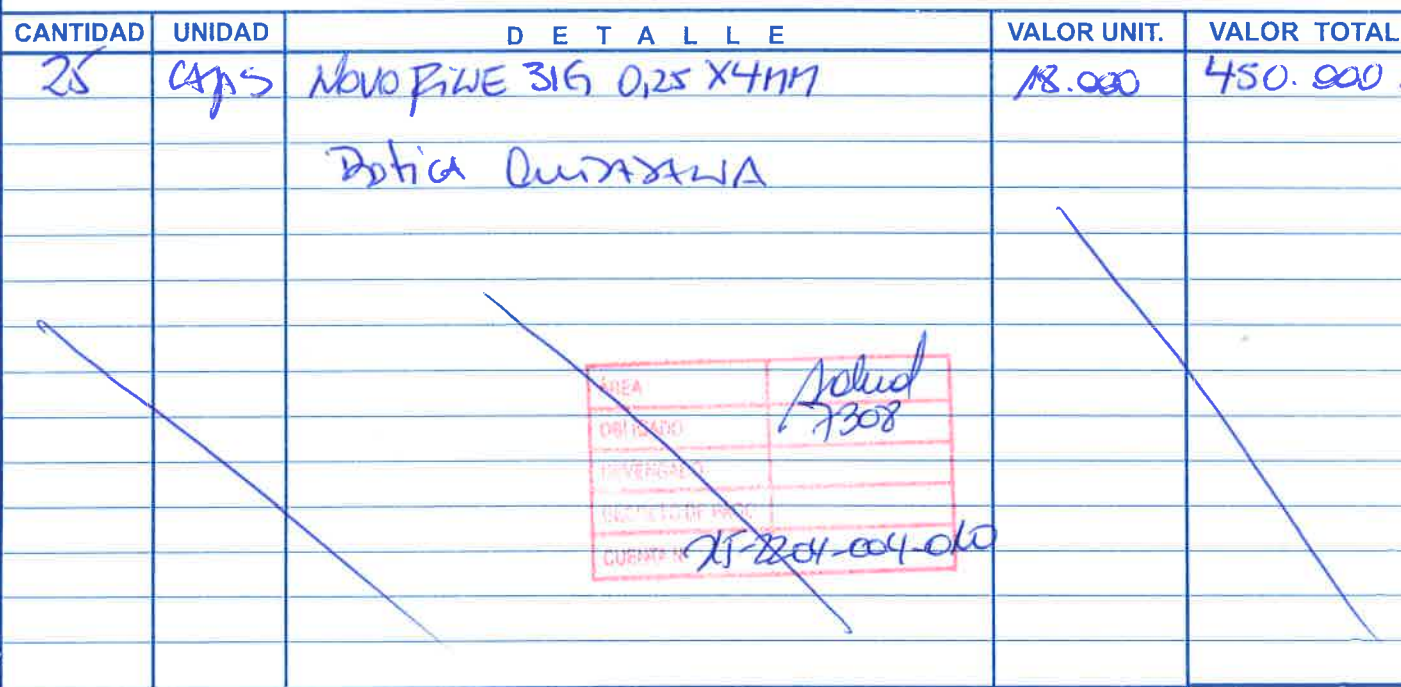 CANTIDAD UNIDAD DETALLE VALOR UNIT. VALOR TOTAL
25 CAJAS NOVOFINE 31G 0,25 X4MM 18.000 450.000
Botica
ÁREA Salud
OBLIGADO 7308
DEVENGADO
DECRETO DE PAGO
CUENTA Nº